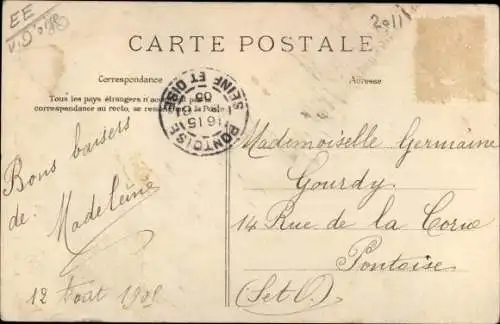 EE
CARTE POSTALE
Correspondance
Adresse
Tous les pays étrangers n'acceptent pas
correspondance au recto, se la Poste
PONTOISE
SEINE ET OISE
16 15
05
Bons baisers
de
Madeleine
12 Août 190
Mademoiselle Germaine
Gourdy.
14 Rue de la Corne
Pontoise
(Set O.)